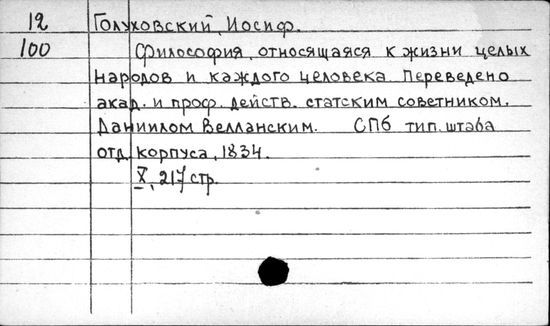 12 Голуховский, Иосиф.
100 Философия, относящаяся к жизни целых
народов и каждого человека. Переведено
акад. и проф. действ. статским советником.
Даниилом Велланским. СПб тип. штаба
отд. корпуса, 1834.
X, 217 стр.